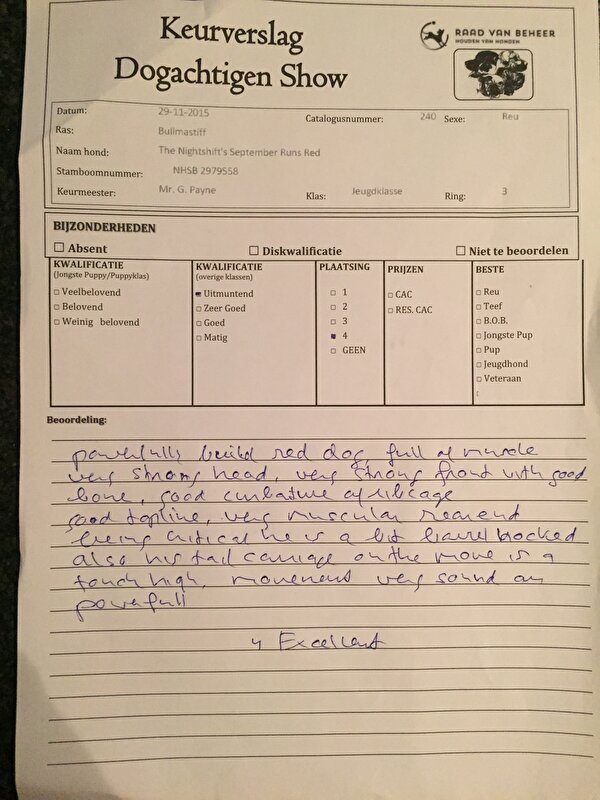 Keurverslag
Dogachtigen Show
RAAD VAN BEHEER
HOUDEN VAN HONDEN
Datum: 29-11-2015 Catalogusnummer: 240 Sexe: Reu
Ras: Bullmastiff
Naam hond: The Nightshift's September Runs Red
Stamboomnummer: NHSB 2979558
Keurmeester: Mr. G. Payne Klas: Jeugdklasse Ring: 3
BIJZONDERHEDEN
☐ Absent ☐ Diskwalificatie ☐ Niet te beoordelen
KWALIFICATIE
(Jongste Puppy/Puppyklas)
☐ Veelbelovend
☐ Belovend
☐ Weinig belovend
KWALIFICATIE
(overige klassen)
■ Uitmuntend
☐ Zeer Goed
☐ Goed
☐ Matig
PLAATSING
☐ 1
☐ 2
☐ 3
■ 4
☐ GEEN
PRIJZEN
☐ CAC
☐ RES. CAC
BESTE
☐ Reu
☐ Teef
☐ B.O.B.
☐ Jongste Pup
☐ Pup
☐ Jeugdhond
☐ Veteraan
Beoordeling:
powerfully build red dog, full of muscle
very strong head, very strong front with good
bone, good curbature of ribcage
good topline, very muscular rearend
being critical he is a bit barrel hocked
also his tail carriage on the move is a
touch high, movement very sound an
powerfull
4 Excellent